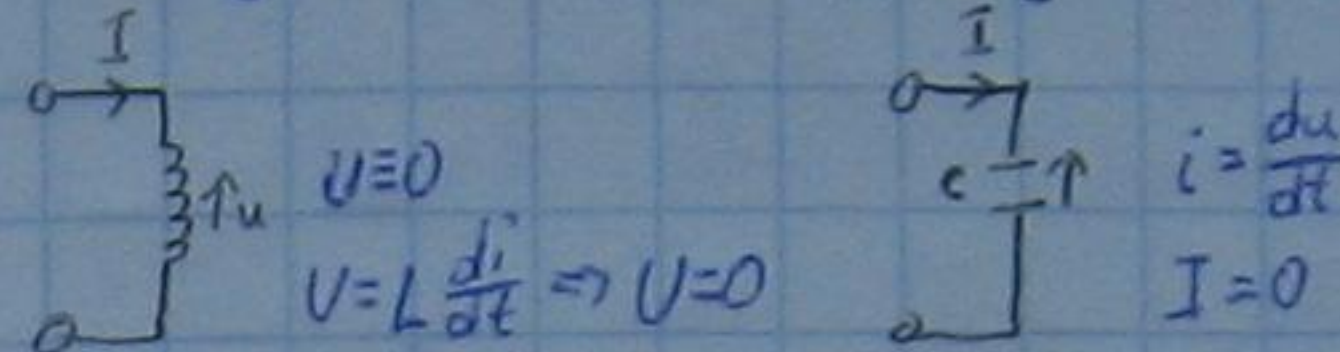 I
↑u
U≡0
U=L di/dt ⇒ U=0
I
c ↑
i = du/dt
I=0